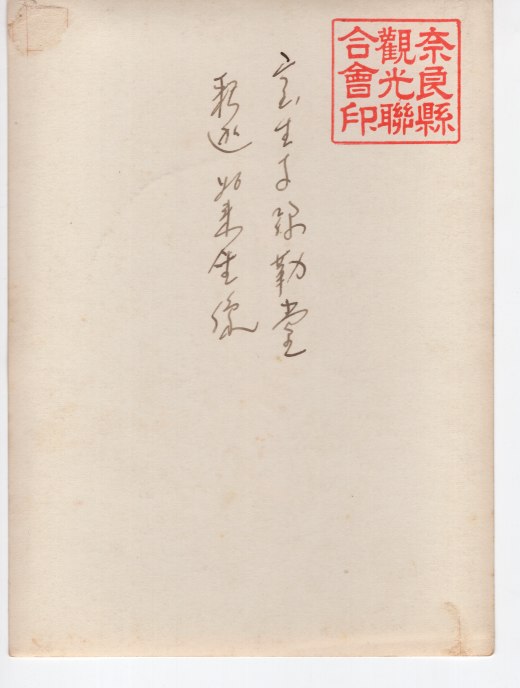 奈良縣
觀光聯
合會印
室生寺弥勒堂
釈迦如来坐像